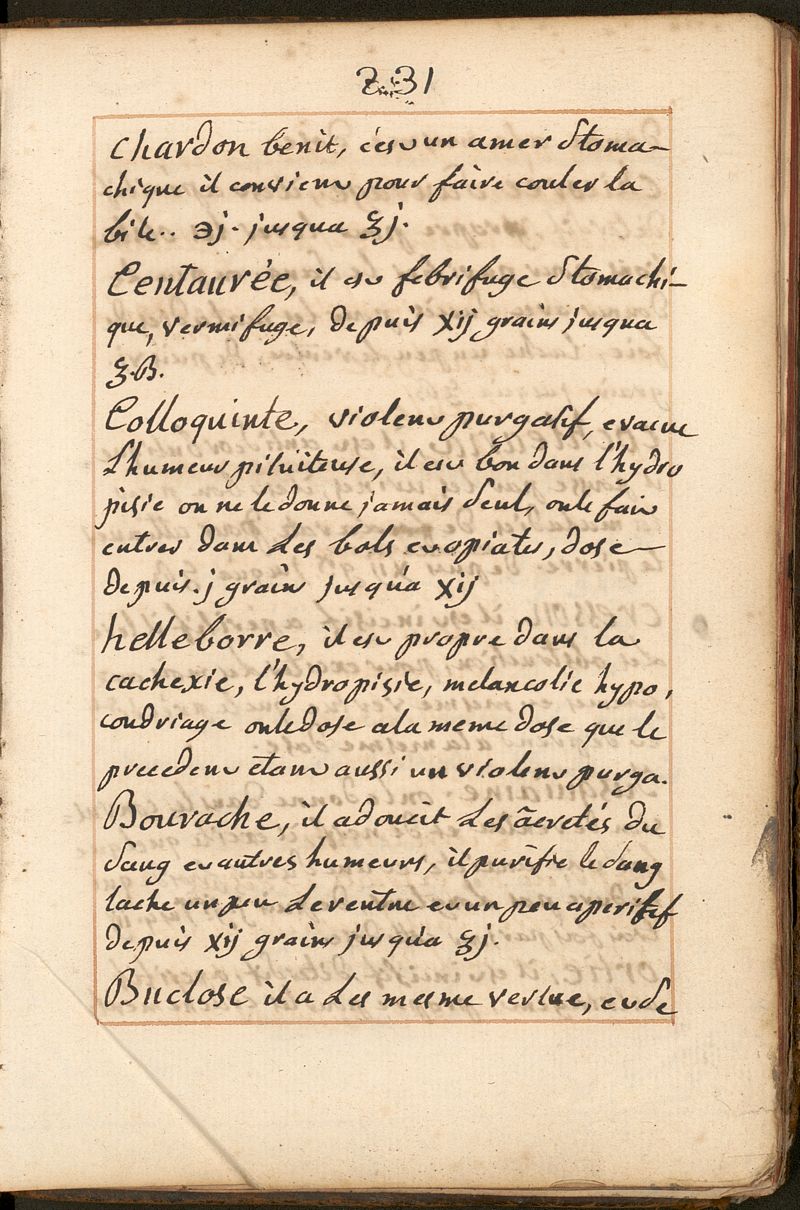 231
Chardon benit, c'est un amer stoma-
chique il convient pour faire couler la
bile.. ℈j. jusqua ʒj.
Centaurée, il est febrifuge stomachi-
que, vermifuge, depuis xij grains jusqua
ʒ.ß.
Colloquinte, violent purgatif, evacue
L'humeur pituiteuse, il est bon dans l'hydro
pisie on ne le donne jamais seul, on le fait
entrer dans Les bols et opiates, dose
depuis. j grains jusqu'a xij
helleborre, il est propre dans la
cachexie, l'hydropisie, melancolie hypo,
condriage on le dose a la meme dose que le
precedent etant aussi un violent purga.
Bourache, il adoucit Les âcretés du
sang et autres humeurs, il purifie le sang
lache un peu Le ventre et un peu aperitif
depuis xij grains jusqu'a ʒj.
Buclose il a Les mesme vertue, et de